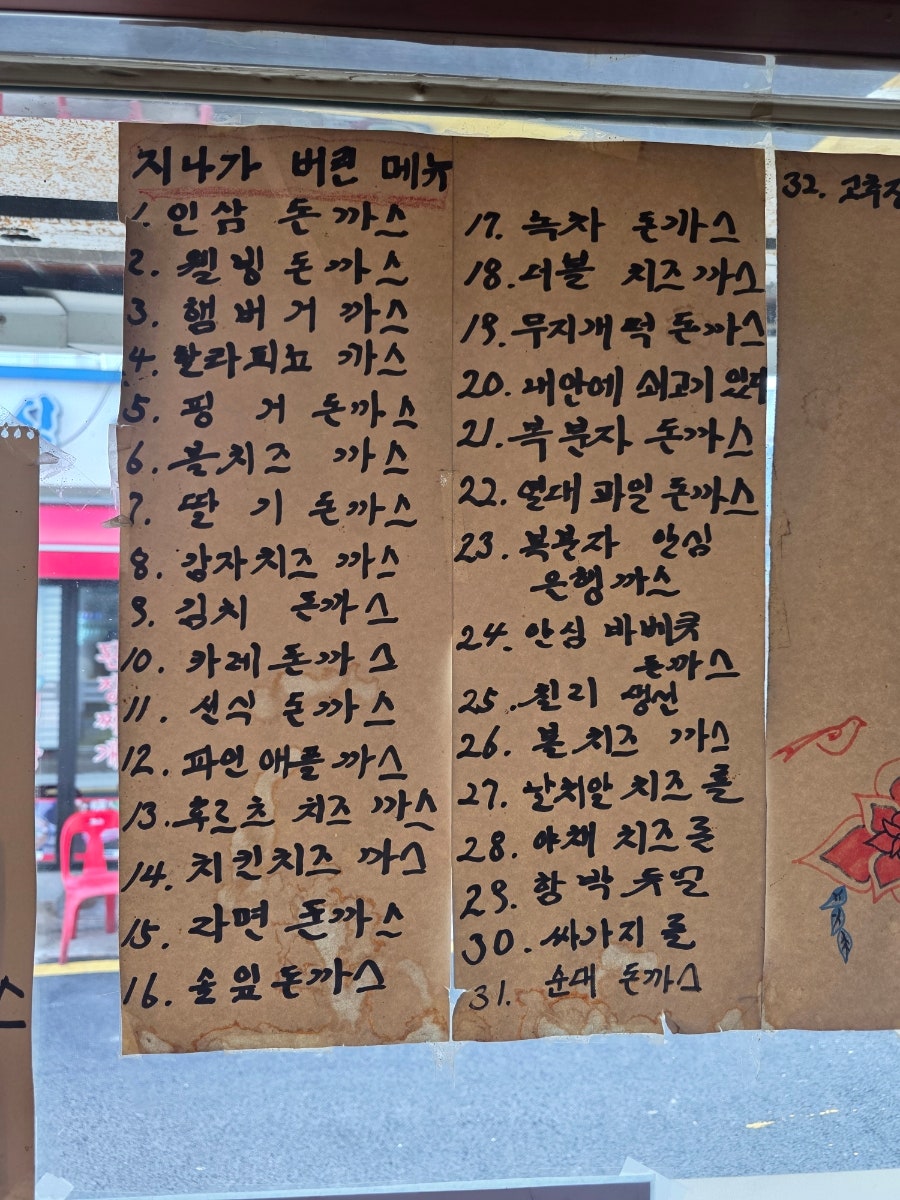 지나가 버린 메뉴
1. 인삼 돈까스
2. 웰빙 돈까스
3. 햄버거 까스
4. 할라피뇨 까스
5. 핑거 돈까스
6. 볼치즈 까스
7. 딸기 돈까스
8. 감자치즈 까스
9. 김치 돈까스
10. 카레 돈까스
11. 선식 돈까스
12. 파인애플 까스
13. 후르츠 치즈 까스
14. 치킨치즈 까스
15. 라면 돈까스
16. 솔잎 돈까스
17. 녹차 돈까스
18. 더블 치즈까스
19. 무지개떡 돈까스
20. 내안에 쇠고기 있다
21. 복분자 돈까스
22. 열대과일 돈까스
23. 복분자 안심
은행까스
24. 안심 바베큐
돈까스
25. 칠리 생선
26. 볼치즈 까스
27. 날치알 치즈롤
28. 야채 치즈롤
29. 함박
30. 싸가지 롤
31. 순대 돈까스
32. 고추장